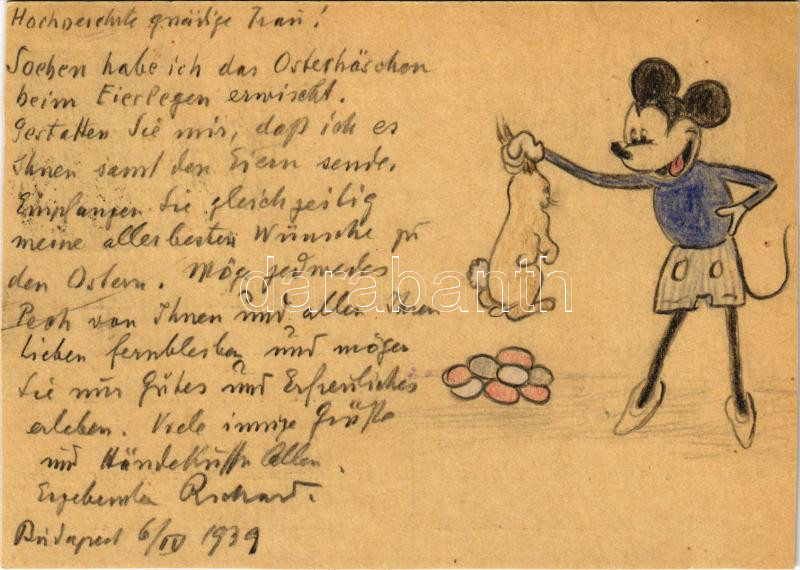 Hochverehrte gnädige Frau!
Soeben habe ich das Osterhäschen
beim Eierlegen erwischt.
Gestatten Sie mir, daß ich es
Ihnen samt den Eiern sende.
Empfangen Sie gleichzeitig
meine allerbesten Wünsche zu
den Ostern. Möge jedwedes
Pech von Ihnen und allen Ihren
Lieben fernbleiben und mögen
Sie nur Gutes und Erfreuliches
erleben. Viele innige Grüße
und Handküsse Allen.
Ergebenster Richard.
Budapest 6/IV 1939
darabanth